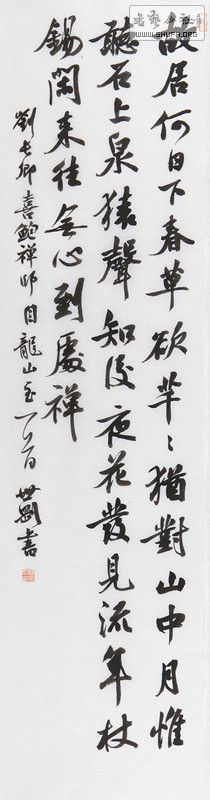 故居何日下春草欲芊芊猶對山中月惟
聽石上泉猿聲知後夜花發見流年杖
錫閑来往無心到處禪
劉長卿喜鮑禪師自龍山至一首 世劉書
WWW.SHUFA.ORG